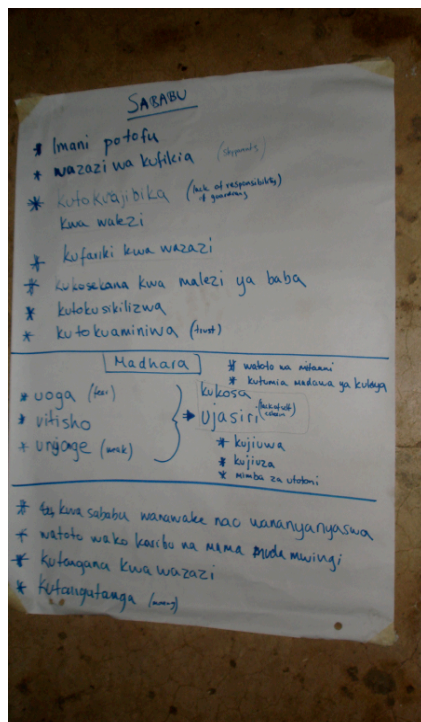 SABABU
* Imani potofu
* wazazi wa kufikia (Stepparents)
* kutokuwajibika (lack of responsibility of guardians)
kwa walezi
* kufariki kwa wazazi
* kukosekana kwa malezi ya baba
* kutokusikilizwa
* kutokuaminiwa (trust)
Madhara
* uoga (fear)
* vitisho
* unyonge (weak)
* watoto na mitaani
* kutumia madawa ya kulevya
kukosa
ujasiri (lack of self esteem)
* kujiuwa
* kujiuza
* mimba za utotoni
* kwa sababu wanawake nao wananyanyaswa
* watoto wako karibu na mama muda mwingi
* kutengana kwa wazazi
* kutangatanga